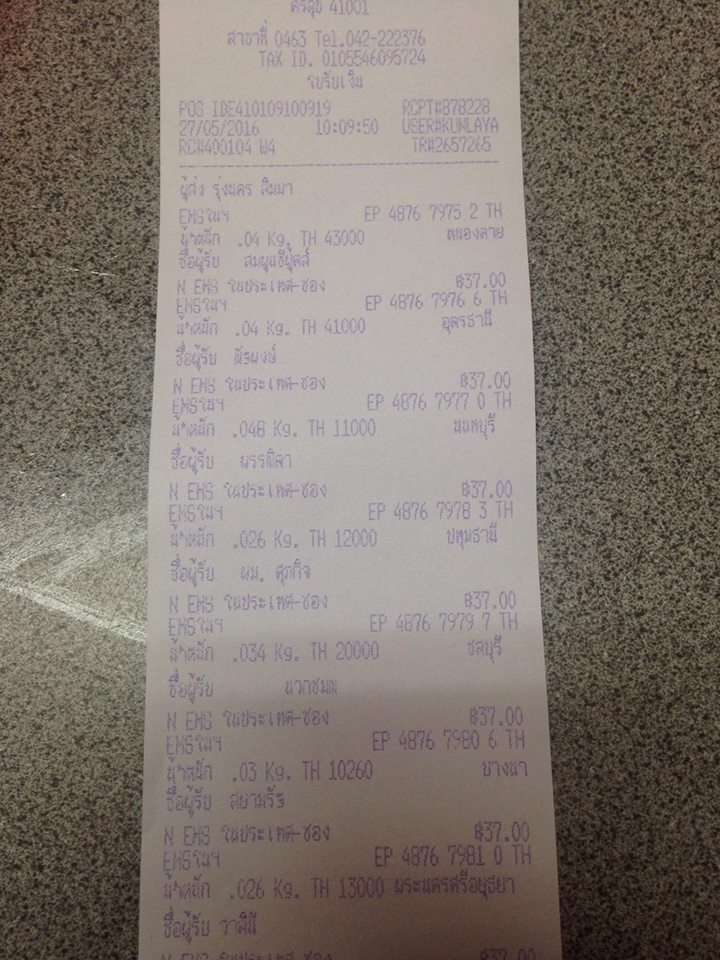 41001
สาขาที่ 0463 Tel.042-222376
TAX ID. 0105546095724
ใบรับเงิน
POS IDE410109100919 RCPT#878228
27/05/2016 10:09:50 USER#KUNLAYA
RC#400104 W4 TR#2657265
ผู้ส่ง รุ่งนคร สิมมา
EMSในฯ EP 4876 7975 2 TH
น้ำหนัก .04 Kg. TH 43000 หนองคาย
ชื่อผู้รับ
N EMS ในประเทศ-ซอง ฿37.00
EMSในฯ EP 4876 7976 6 TH
น้ำหนัก .04 Kg. TH 41000 อุดรธานี
ชื่อผู้รับ
N EMS ในประเทศ-ซอง ฿37.00
EMSในฯ EP 4876 7977 0 TH
น้ำหนัก .048 Kg. TH 11000 นนทบุรี
ชื่อผู้รับ
N EMS ในประเทศ-ซอง ฿37.00
EMSในฯ EP 4876 7978 3 TH
น้ำหนัก .026 Kg. TH 12000 ปทุมธานี
ชื่อผู้รับ
N EMS ในประเทศ-ซอง ฿37.00
EMSในฯ EP 4876 7979 7 TH
น้ำหนัก .034 Kg. TH 20000 ชลบุรี
ชื่อผู้รับ
N EMS ในประเทศ-ซอง ฿37.00
EMSในฯ EP 4876 7980 6 TH
น้ำหนัก .03 Kg. TH 10260 บางนา
ชื่อผู้รับ สยามรัฐ
N EMS ในประเทศ-ซอง ฿37.00
EMSในฯ EP 4876 7981 0 TH
น้ำหนัก .026 Kg. TH 13000 พระนครศรีอยุธยา
ชื่อผู้รับ
N EMS ในประเทศ-ซอง ฿37.00